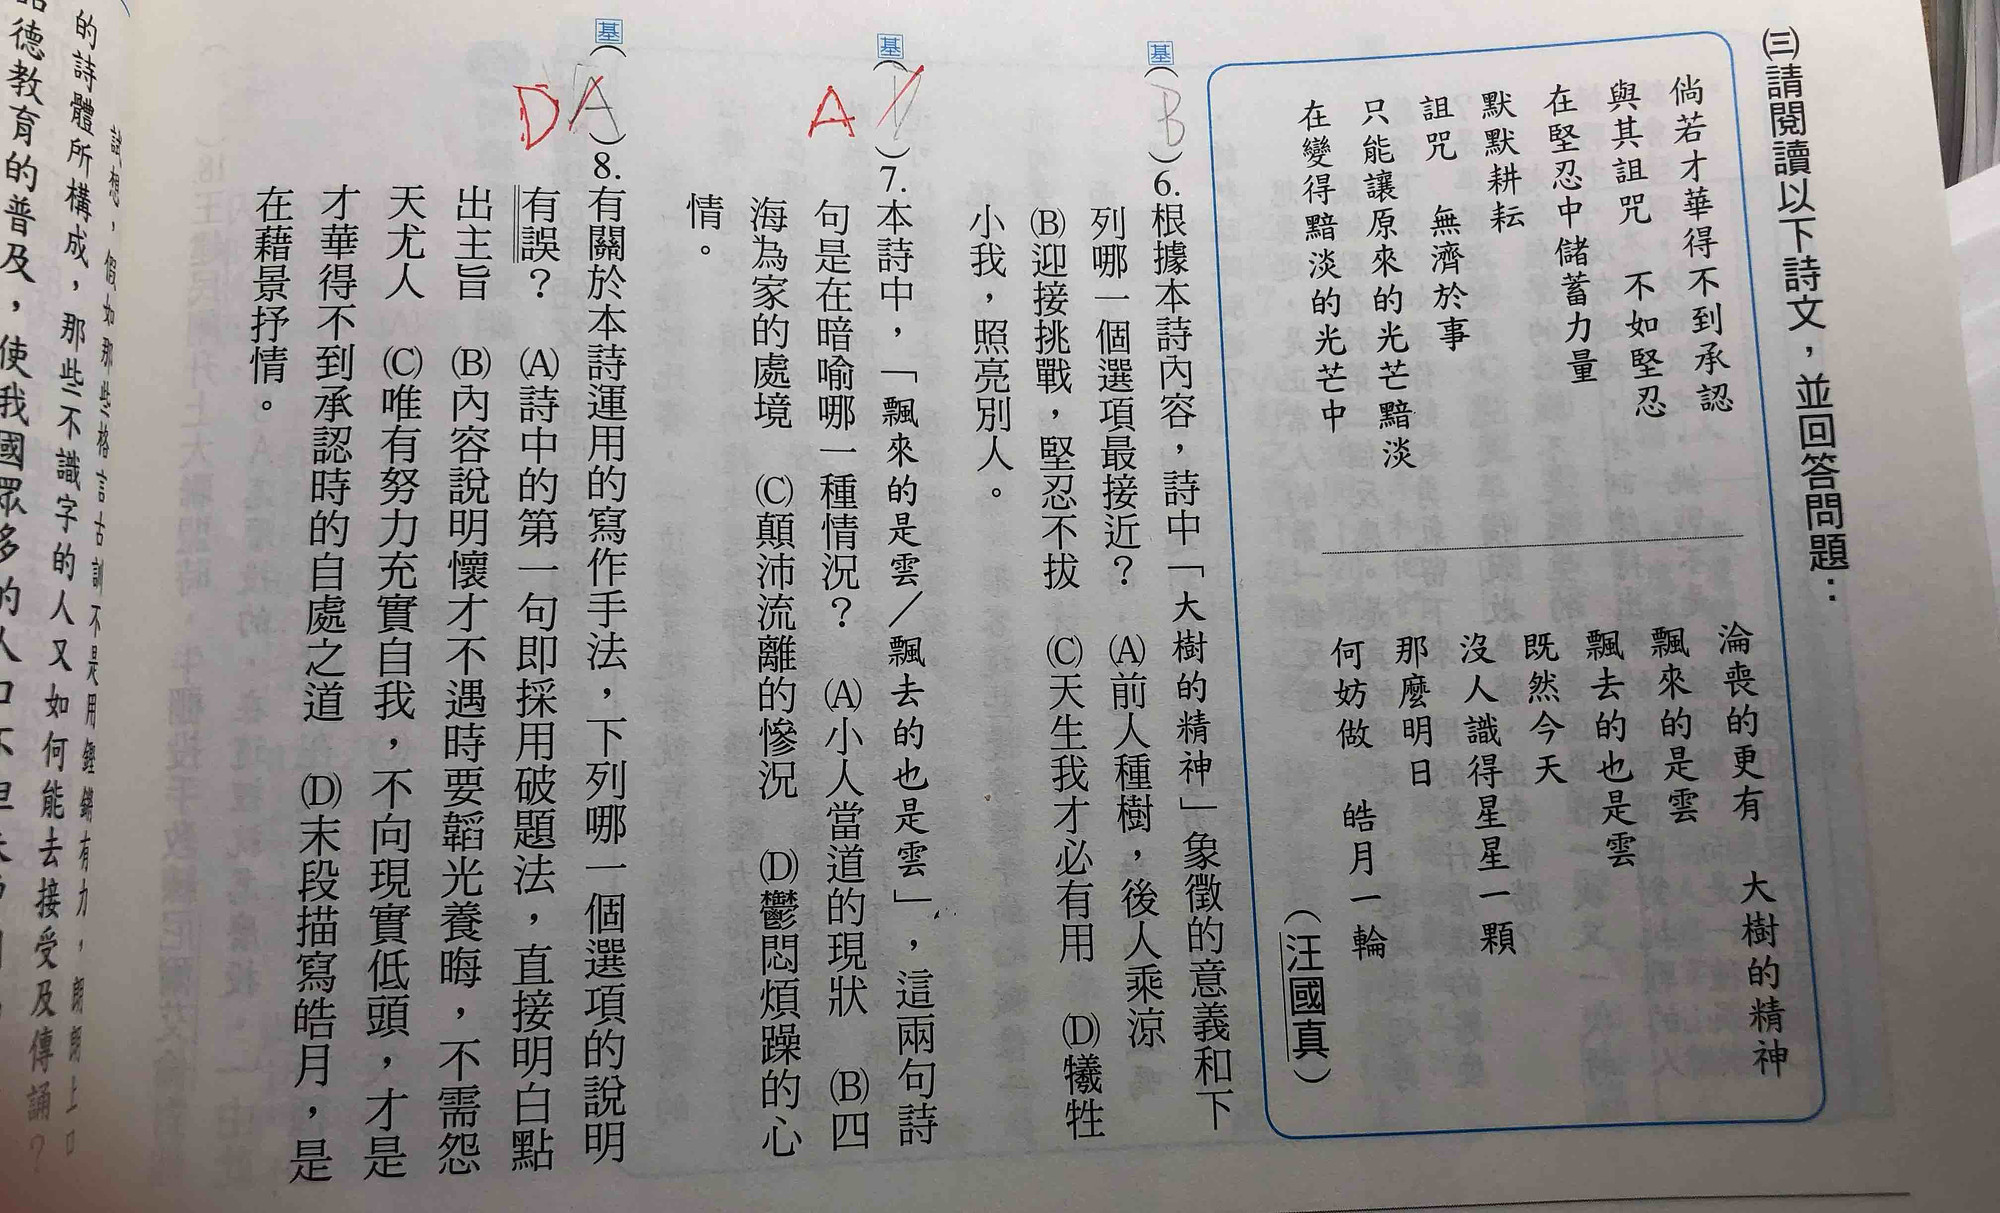 ㈢請閱讀以下詩文，並回答問題：
倘若才華得不到承認
與其詛咒　不如堅忍
在堅忍中儲蓄力量
默默耕耘
詛咒　無濟於事
只能讓原來的光芒黯淡
在變得黯淡的光芒中
淪喪的更有　大樹的精神
飄來的是雲
飄去的也是雲
既然今天
沒人識得星星一顆
那麼明日
何妨做　皓月一輪
（汪國真）
基（B）6.根據本詩內容，詩中「大樹的精神」象徵的意義和下
列哪一個選項最接近？　(A)前人種樹，後人乘涼
(B)迎接挑戰，堅忍不拔　(C)天生我才必有用　(D)犧牲
小我，照亮別人。
基（　）7.本詩中，「飄來的是雲／飄去的也是雲」，這兩句詩
A
句是在暗喻哪一種情況？　(A)小人當道的現狀　(B)四
海為家的處境　(C)顛沛流離的慘況　(D)鬱悶煩躁的心
情。
基（A）8.有關於本詩運用的寫作手法，下列哪一個選項的說明
D
有誤？　(A)詩中的第一句即採用破題法，直接明白點
出主旨　(B)內容說明懷才不遇時要韜光養晦，不需怨
天尤人　(C)唯有努力充實自我，不向現實低頭，才是
才華得不到承認時的自處之道　(D)末段描寫皓月，是
在藉景抒情。
試想，假如那些格言古訓不是用鏗鏘有力，朗朗上口
的詩體所構成，那些不識字的人又如何能去接受及傳誦？
德教育的普及，使我國眾多的人口不